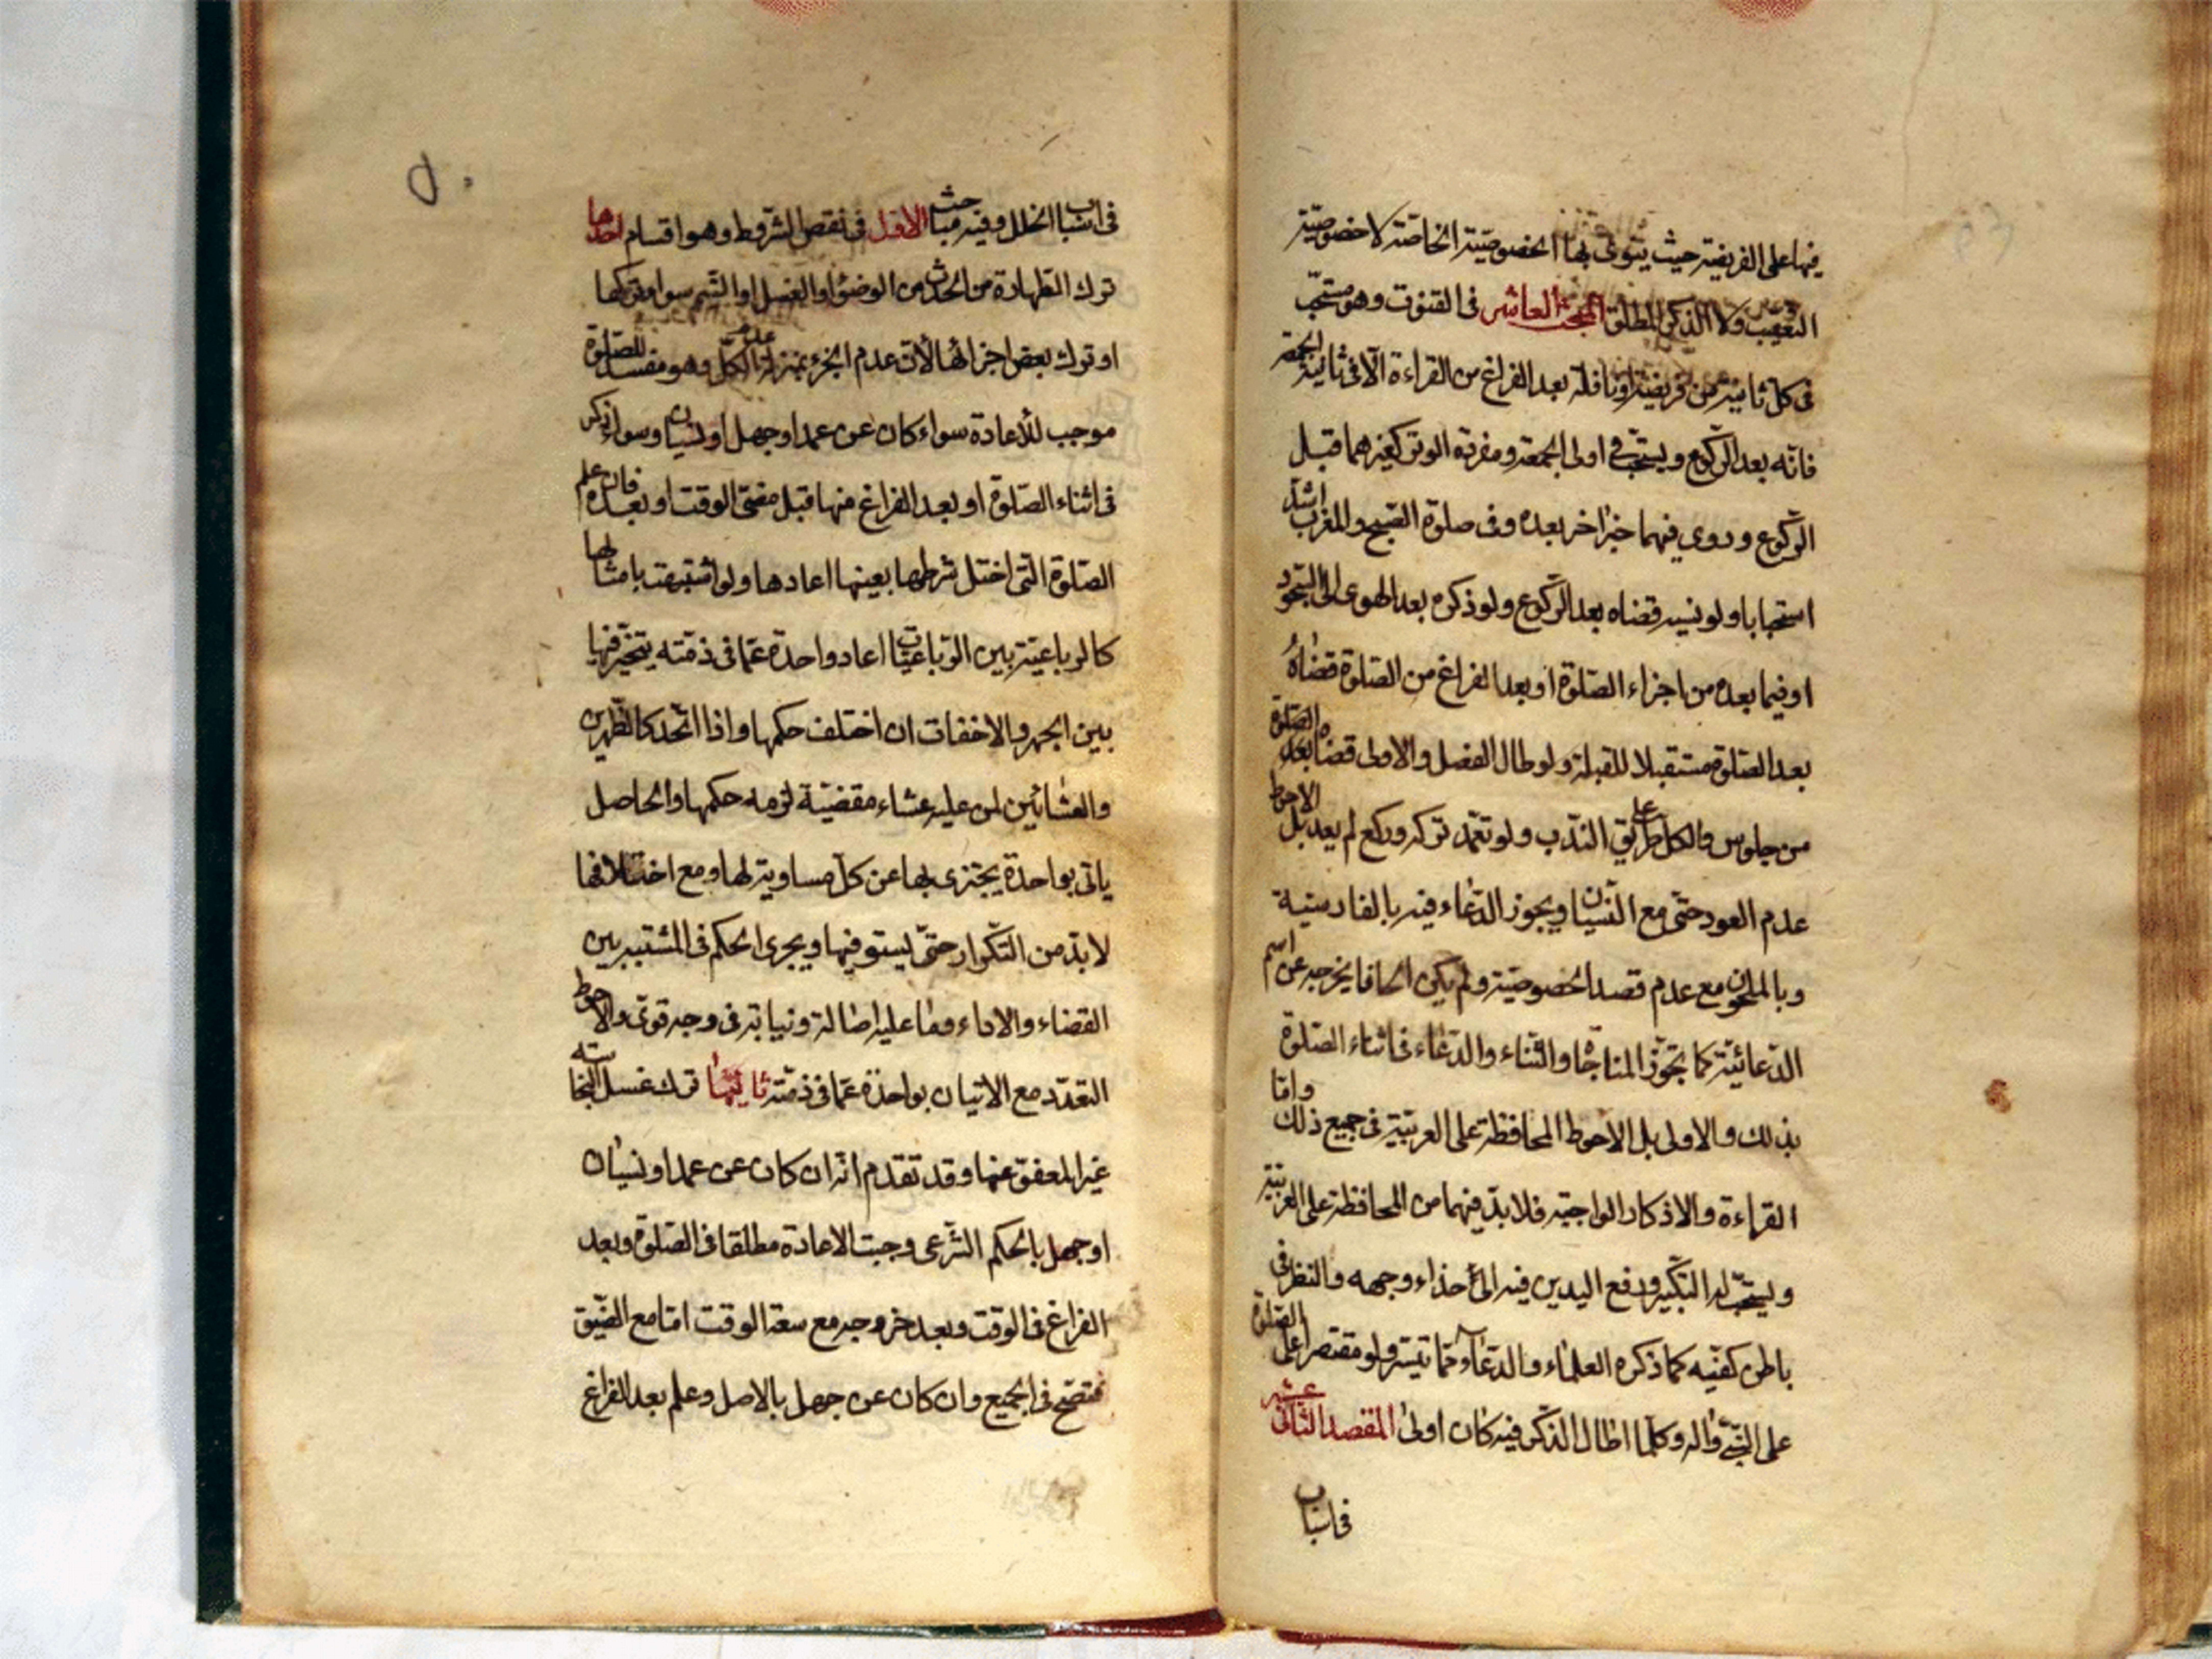 فيها على الفريضة حيث ينوى بها الخصوصية الخاصة لا خصوصية
التعقيب ولا الذكر المطلق المبحث العاشر فى القنوت وهو مستحب
فى كل ثانية من فريضة او نافلة بعد الفراغ من القراءة الا فى ثانية الجمعة
فانه بعد الركوع ويستحب فى اولى الجمعة ومفردة الوتر كغيرهما قبل
الركوع وروى فيهما خبر اخر بعده وفى صلوة الصبح والمغرب اشد
استحبابا ولو نسيه قضاه بعد الركوع ولو ذكره بعد الهوى الى السجود
او فيما بعده من اجزاء الصلوة او بعد الفراغ من الصلوة قضاه
بعد الصلوة مستقبلا للقبلة ولو طال الفصل والاولى قضاه بعد الصلوة
من جلوس والكل على طريق الندب ولو تعمد تركه وركع لم يعد بل الاحوط
عدم العود حتى مع النسيان ويجوز الدعاء فيه بالفارسية
وبالملحون مع عدم قصد الخصوصية ولم يكن الحانا يخرجه عن اسم
الدعائية كما تجوز المناجاة والثناء والدعاء فى اثناء الصلوة
بذلك والاولى بل الاحوط المحافظة على العربية فى جميع ذلك واما
القراءة والاذكار الواجبة فلا بد فيهما من المحافظة على العربية
ويستحب له التكبير ورفع اليدين فيه الى حذاء وجهه والنظر فى
باطن كفيه كما ذكره العلماء والدعاء بما تيسر ولو مقتصرا على الصلوة
على النبى واله وكلما اطال الذكر فيه كان اولى المقصد الثانى عشر
فى اسباب
فى اسباب الخلل وفيه مباحث الاول فى نقص الشروط وهو اقسام احدها
ترك الطهارة من الحدث من الوضوء او الغسل او التيمم سواء تركها
او ترك بعض اجزائها لان عدم الجزء بمنزلة عدم الكل وهو مفسد للصلوة
موجب للاعادة سواء كان عن عمد او جهل او نسيان وسواء ذكر
فى اثناء الصلوة او بعد الفراغ منها قبل مضى الوقت او بعده فان علم
الصلوة التى اختل شرطها بعينها اعادها ولو اشتبهت بامثالها
كالرباعية بين الرباعيات اعاد واحدة عما فى ذمته يتخير فيها
بين الجهر والاخفات ان اختلف حكمها واذا اتحد كالظهرين
والعشائين لمن عليه عشاء مقضية لزمه حكمها والحاصل
ياتى بواحدة يجتزى بها عن كل مساوية لها ومع اختلافها
لابد من التكرار حتى يستوفيها ويجرى الحكم فى المشتبه بين
القضاء والاداء وما عليه اصالة ونيابة فى وجه قوى والاحوط
التعدد مع الاتيان بواحدة عما فى ذمته ثانيها ترك غسل النجاسة
غير المعفو عنها وقد تقدم انه ان كان عن عمد او نسيان
او جهل بالحكم الشرعى وجبت الاعادة مطلقا فى الصلوة وبعد
الفراغ فى الوقت وبعد خروجه مع سعة الوقت اما مع الضيق
فتصح فى الجميع وان كان عن جهل بالاصل وعلم بعد الفراغ